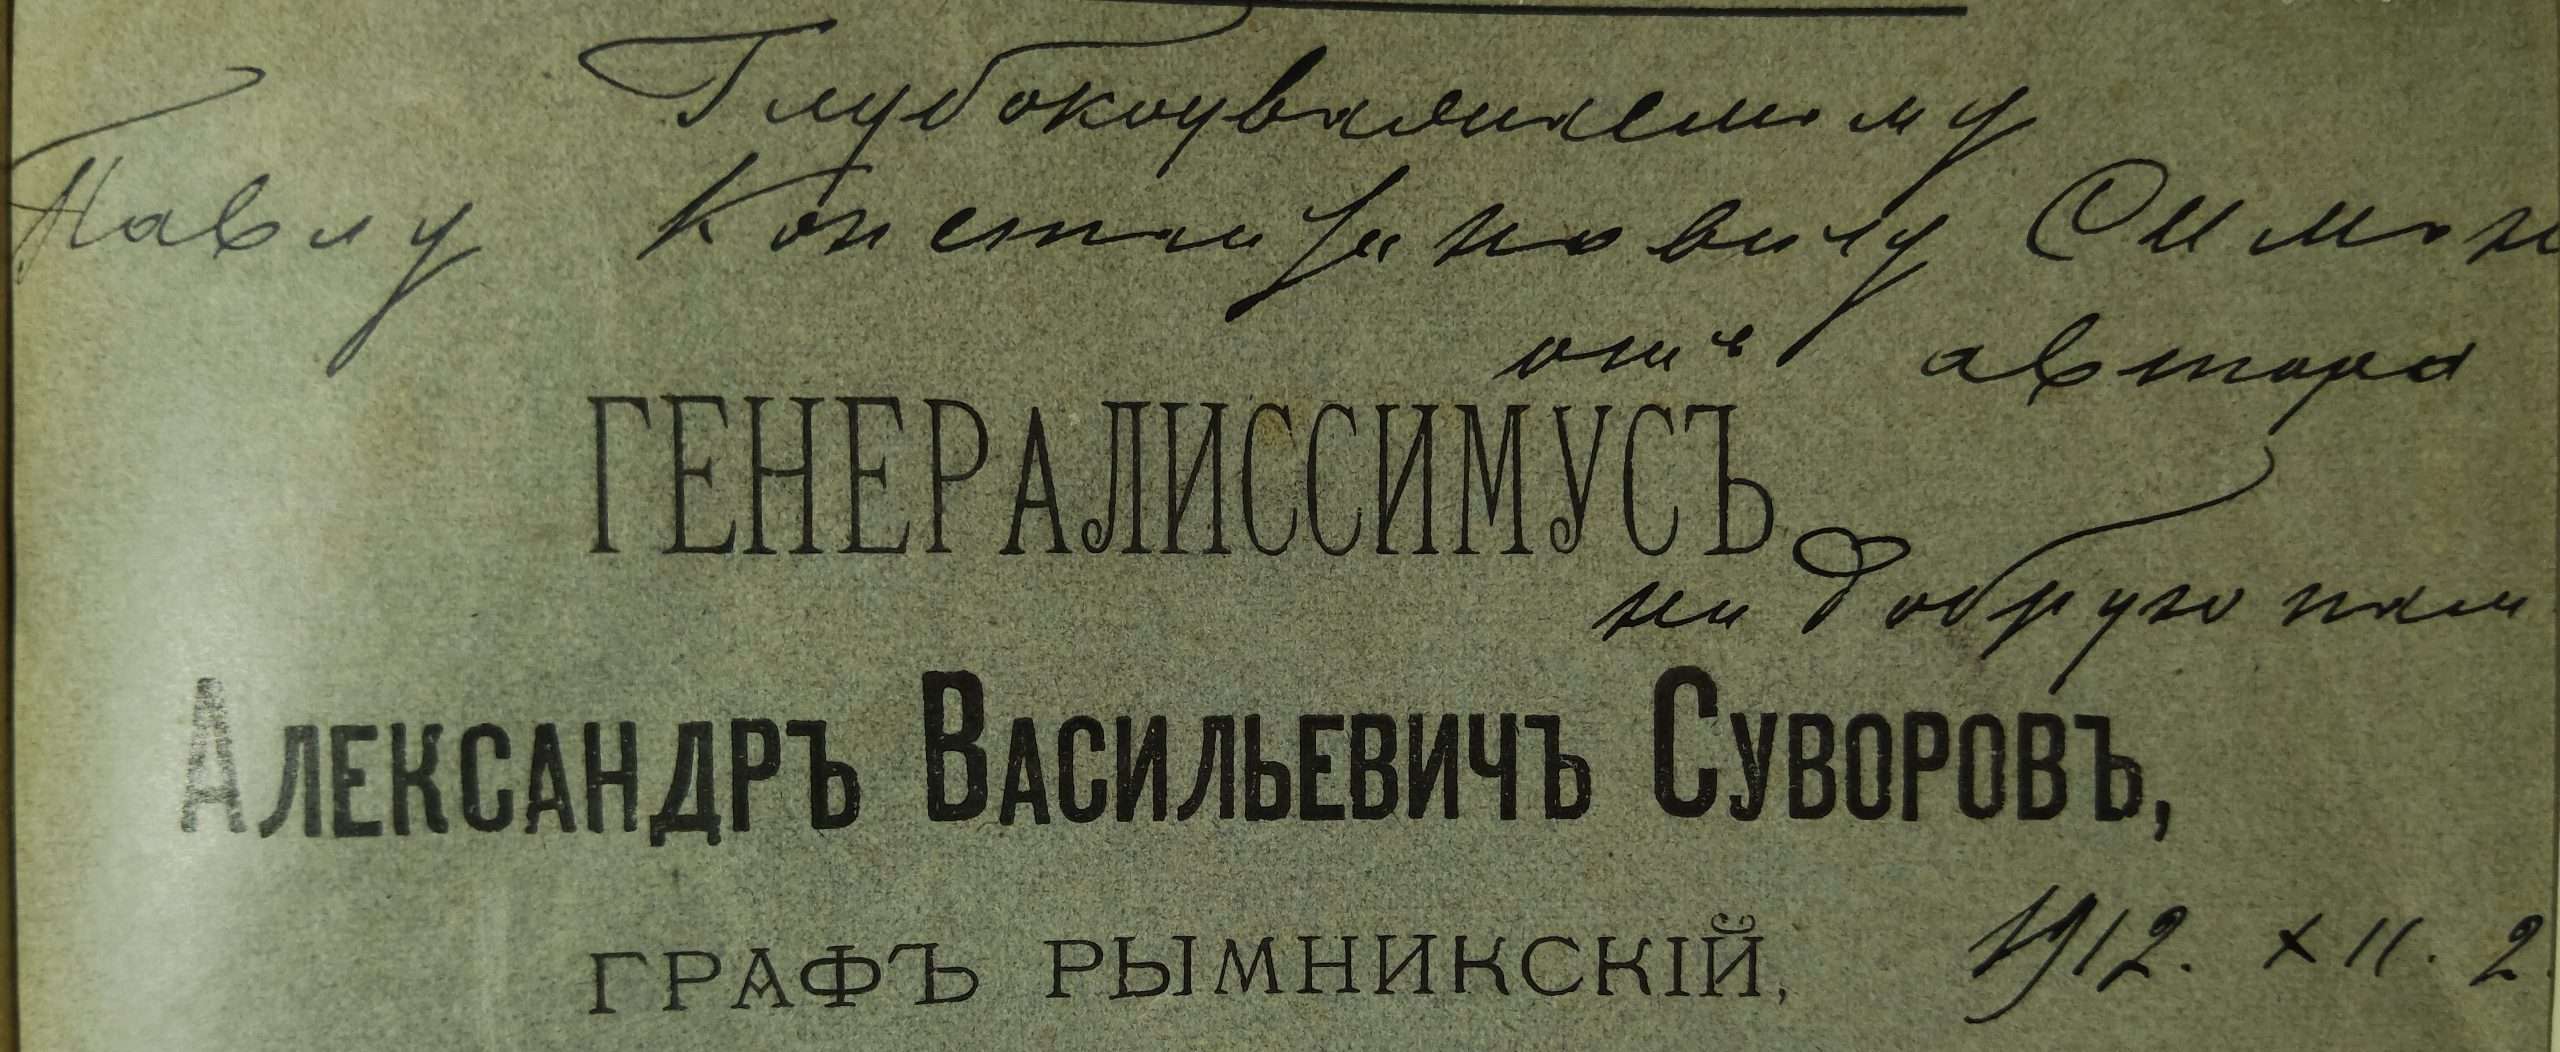 Глубокоуважаемому
Павлу Константиновичу Симон
отъ автора
ГЕНЕРАЛИССИМУСЪ
на добрую пам
АЛЕКСАНДРЪ ВАСИЛЬЕВИЧЪ СУВОРОВЪ,
ГРАФЪ РЫМНИКСКІЙ,
1912. XII. 2